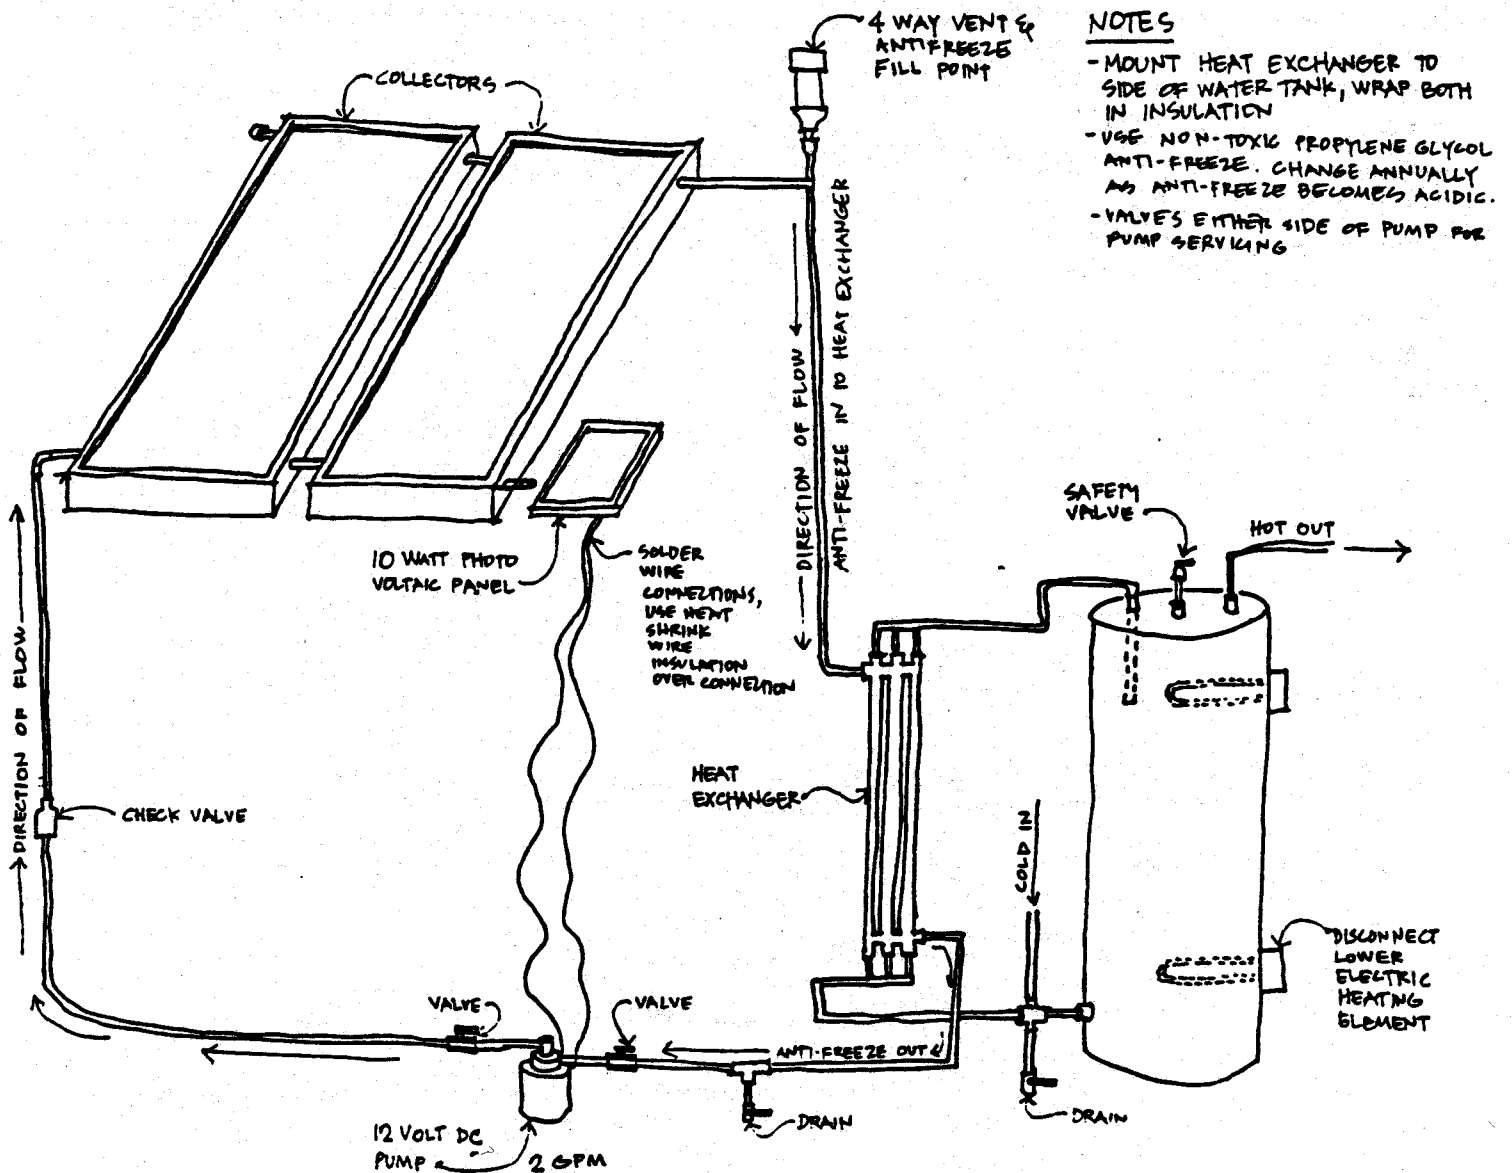 4 WAY VENT &
ANTIFREEZE
FILL POINT
NOTES
- MOUNT HEAT EXCHANGER TO
SIDE OF WATER TANK, WRAP BOTH
IN INSULATION
- USE NON-TOXIC PROPYLENE GLYCOL
ANTI-FREEZE. CHANGE ANNUALLY
AS ANTI-FREEZE BECOMES ACIDIC.
- VALVES EITHER SIDE OF PUMP FOR
PUMP SERVICING
COLLECTORS
DIRECTION OF FLOW
ANTI-FREEZE IN TO HEAT EXCHANGER
10 WATT PHOTO
VOLTAIC PANEL
SOLDER
WIRE
CONNECTIONS,
USE HEAT
SHRINK
WIRE
INSULATION
OVER CONNECTION
SAFETY
VALVE
HOT OUT
DIRECTION OF FLOW
CHECK VALVE
HEAT
EXCHANGER
COLD IN
DISCONNECT
LOWER
ELECTRIC
HEATING
ELEMENT
VALVE
VALVE
ANTI-FREEZE OUT
DRAIN
DRAIN
12 VOLT DC
PUMP
2 GPM